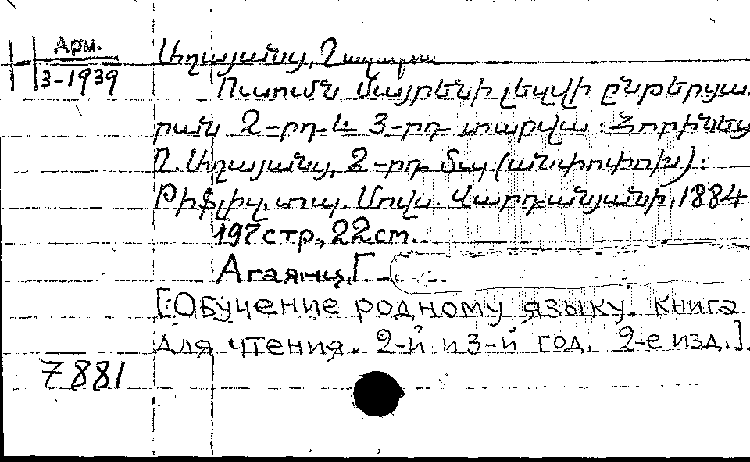 Арм.
3-1939
Աղայանց, Ղազարոս
Ուսումն մայրենի լեզվի ընթերցա
րան 2-րդ և 3-րդ տարվա: Հորինեց
Ղ. Աղայանց, 2-րդ տպ. (անփոփոխ):
Թիֆլիս, տպ. Մովս. Վարդանյանի, 1884
197 стр., 22 см.
Агаянц, Г
[Обучение родному языку. Книга
для чтения. 2-й и 3-й год. 2-е изд.].
7881